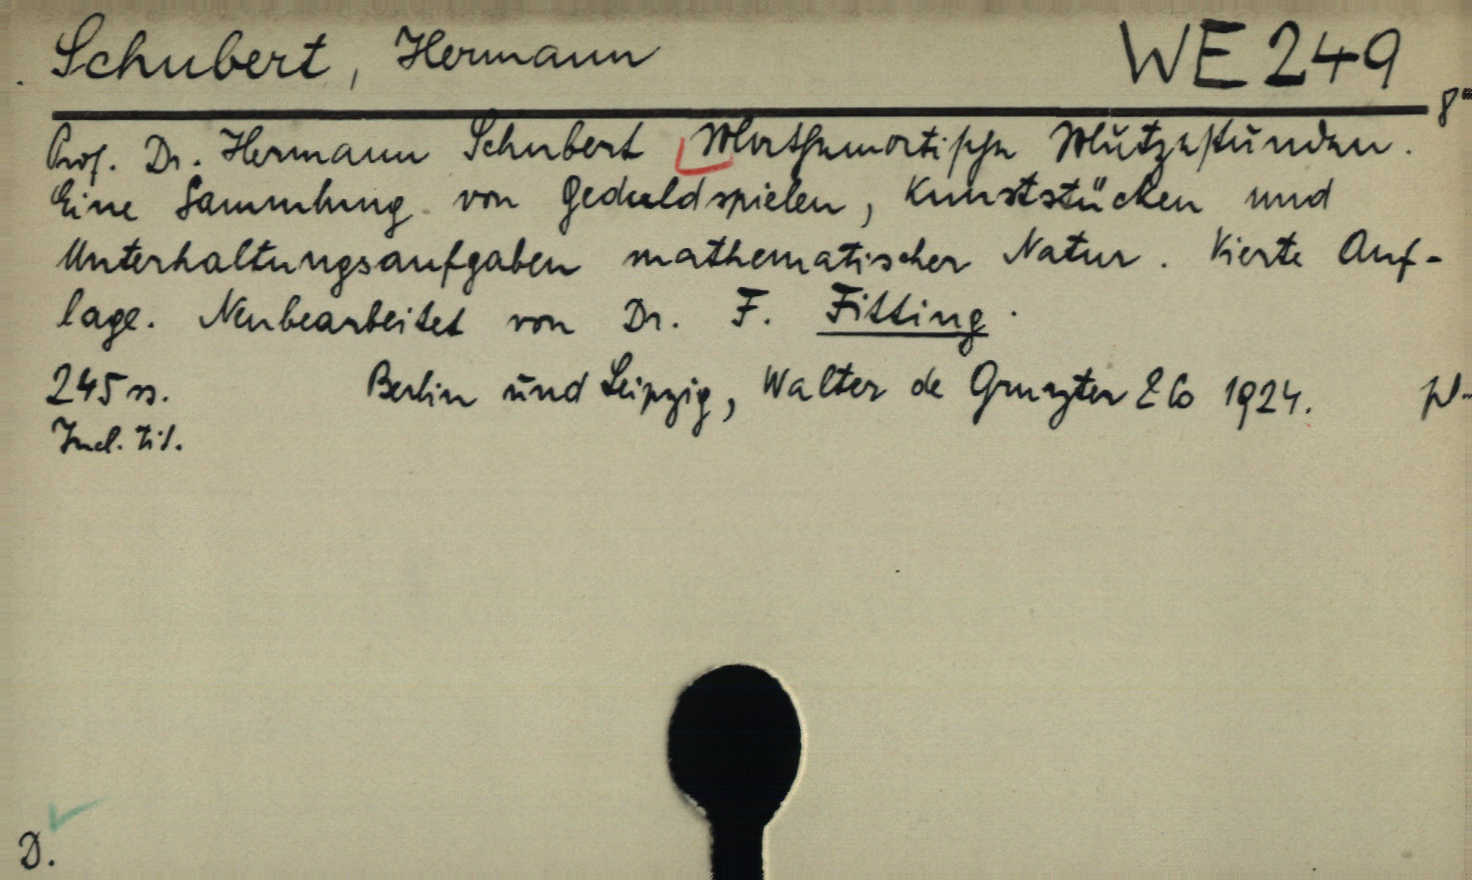 Schubert, Hermann WE 249
8°
Prof. Dr. Hermann Schubert Mathematische Mußestunden.
Eine Sammlung von Geduldspielen, Kunststücken und
Unterhaltungsaufgaben mathematischer Natur. Vierte Auf-
lage. Neubearbeitet von Dr. F. Fitting.
245 ss. Berlin und Leipzig, Walter de Gruyter & Co 1924.
Incl. tit.
D.